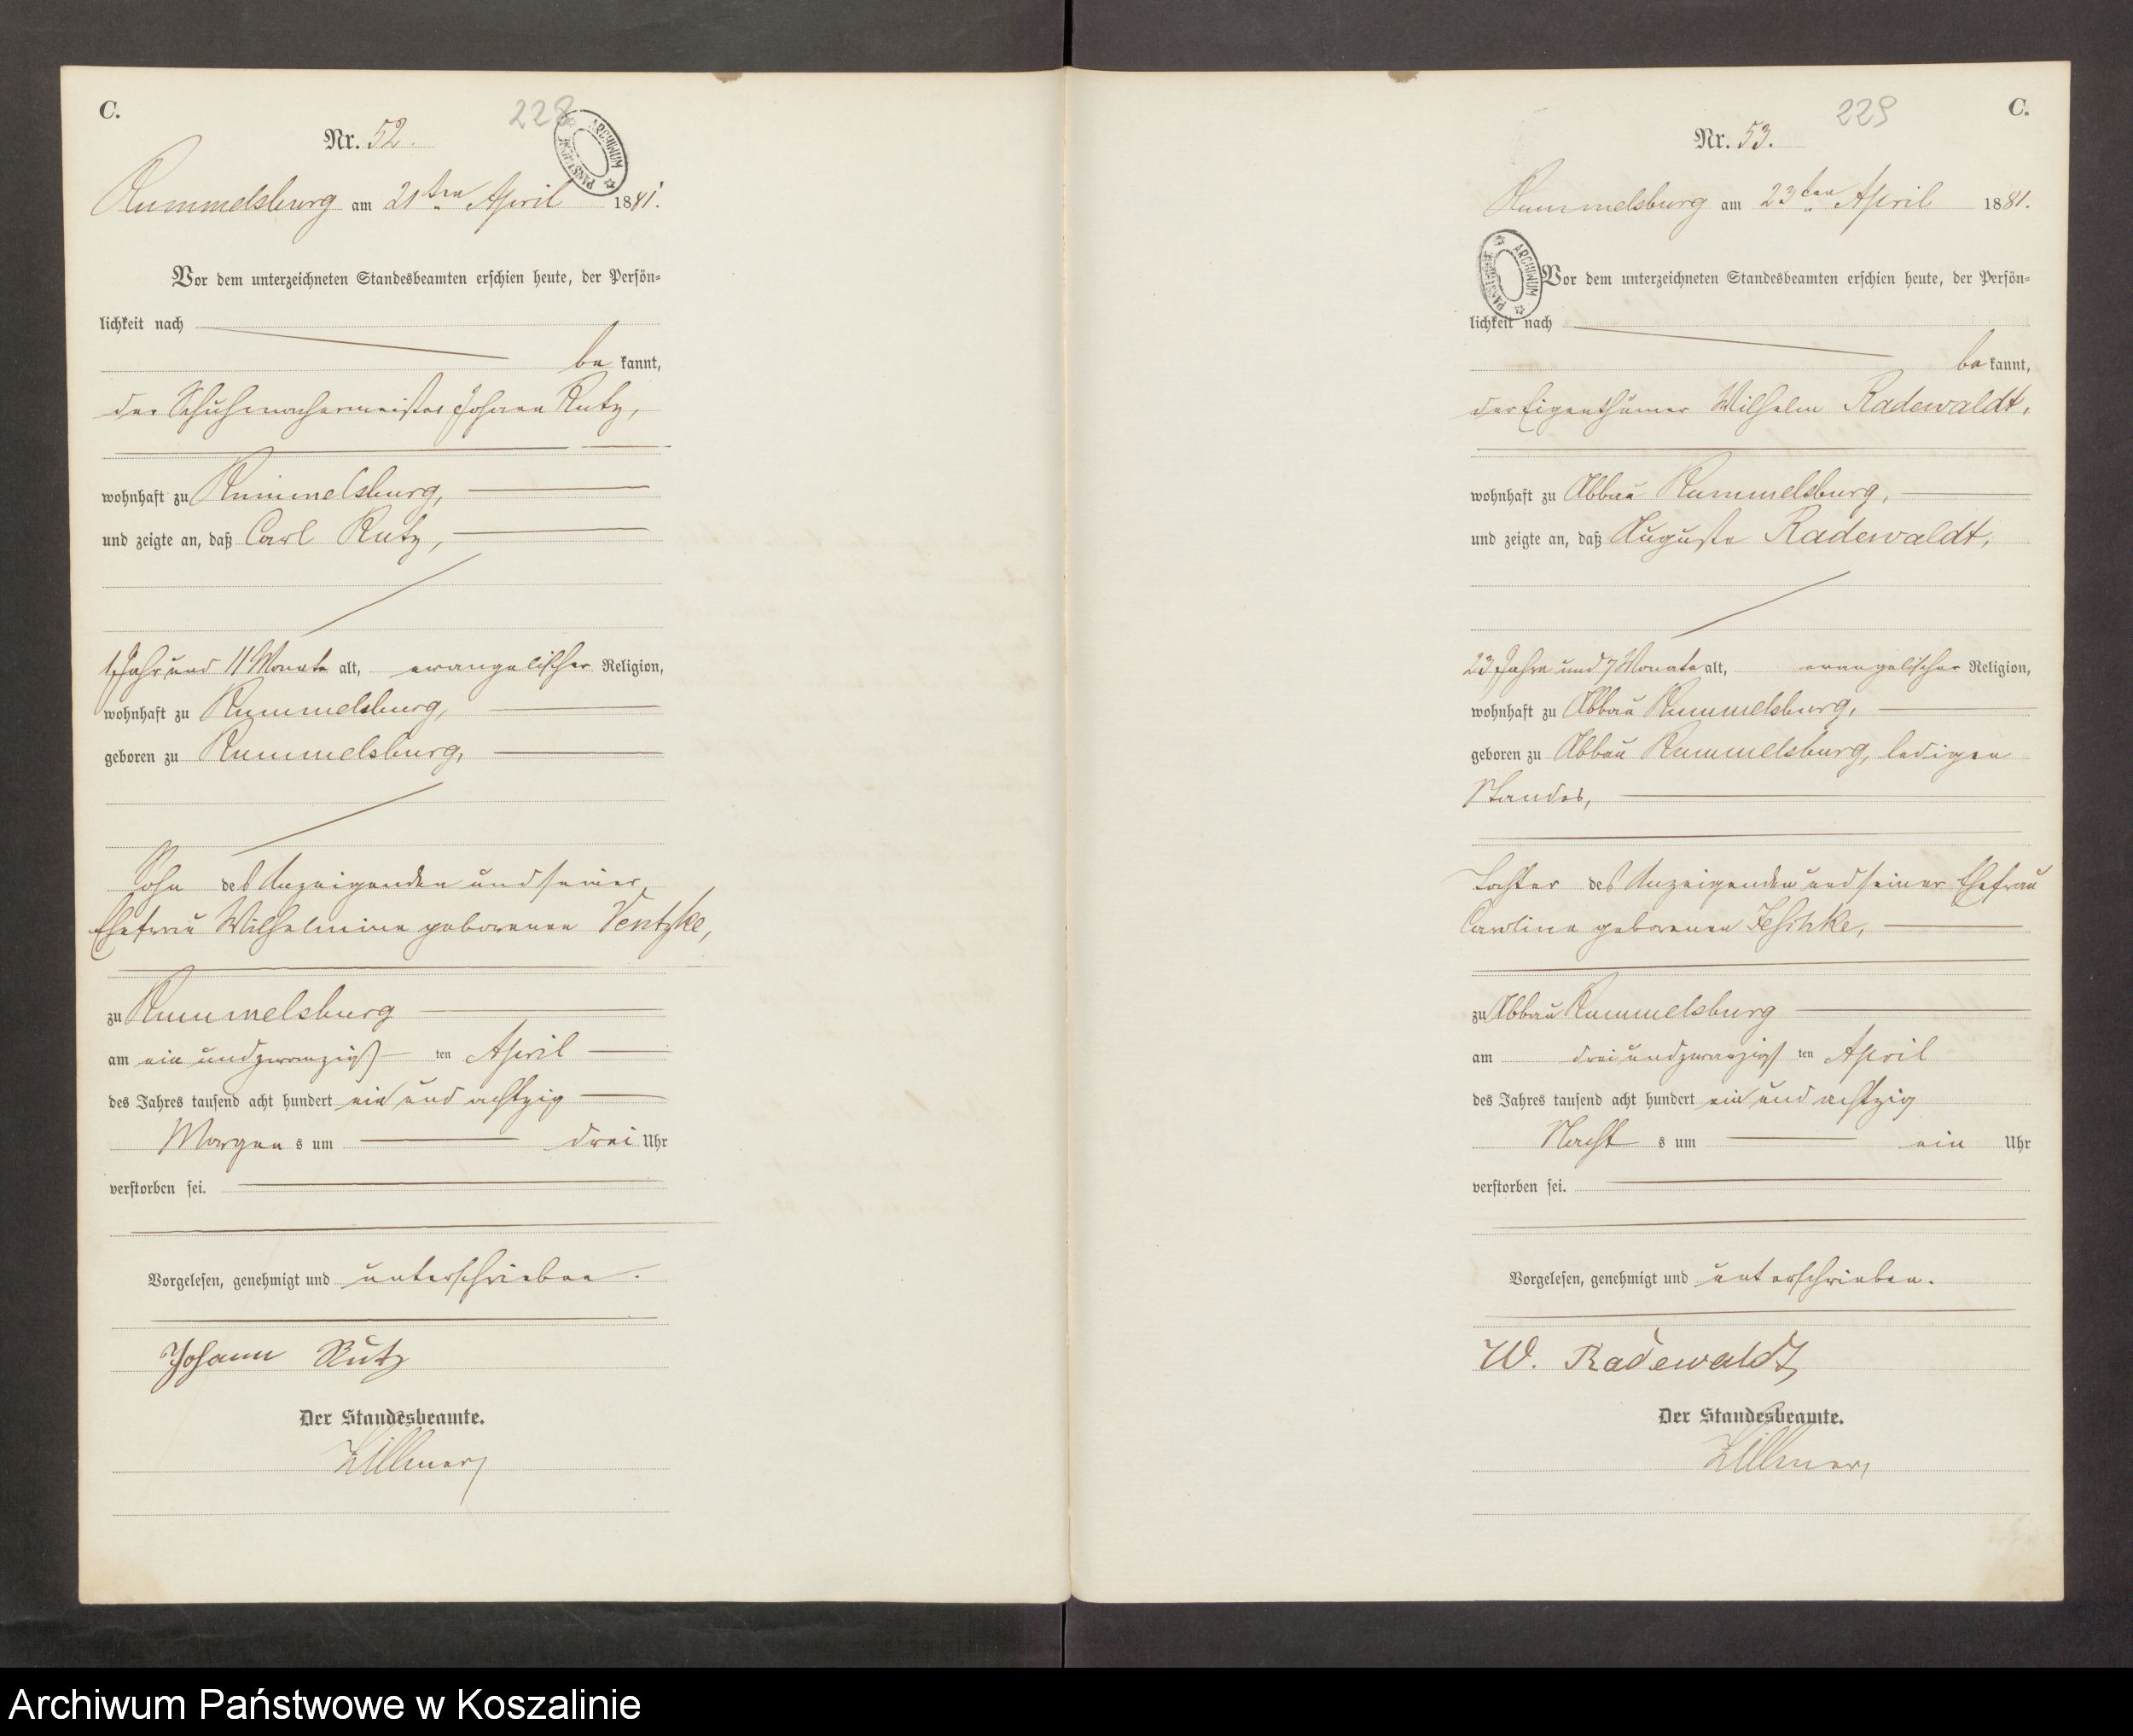 C.
228
Nr. 52.
ARCHIWUM PAŃSTWOWE
Rummelsburg am 21ten April 1881.
Vor dem unterzeichneten Standesbeamten erschien heute, der Persön-
lichkeit nach
be kannt,
der Schuhmachermeister Johann Rutz,
wohnhaft zu Rummelsburg,
und zeigte an, daß Carl Rutz,
1 Jahr und 11 Monate alt, evangelischer Religion,
wohnhaft zu Rummelsburg,
geboren zu Rummelsburg,
Sohn des Anzeigenden und seiner
Ehefrau Wilhelmine geborenen Ventzke,
zu Rummelsburg
am ein und zwanzigsten April
des Jahres tausend acht hundert ein und achtzig
Morgens um drei Uhr
verstorben sei.
Vorgelesen, genehmigt und unterschrieben.
Johann Rutz
Der Standesbeamte.
Zillmer
229
C.
Nr. 53.
Rummelsburg am 23ten April 1881.
ARCHIWUM PAŃSTWOWE
Vor dem unterzeichneten Standesbeamten erschien heute, der Persön-
lichkeit nach
be kannt,
der Eigenthümer Wilhelm Radewaldt,
wohnhaft zu Abbau Rummelsburg,
und zeigte an, daß Auguste Radewaldt,
23 Jahre und 7 Monate alt, evangelischer Religion,
wohnhaft zu Abbau Rummelsburg,
geboren zu Abbau Rummelsburg, ledigen
Standes,
Tochter des Anzeigenden und seiner Ehefrau
Caroline geborenen
zu Abbau Rummelsburg
am drei und zwanzigsten April
des Jahres tausend acht hundert ein und achtzig
Nachts um ein Uhr
verstorben sei.
Vorgelesen, genehmigt und unterschrieben.
W. Radewaldt
Der Standesbeamte.
Zillmer
Archiwum Państwowe w Koszalinie